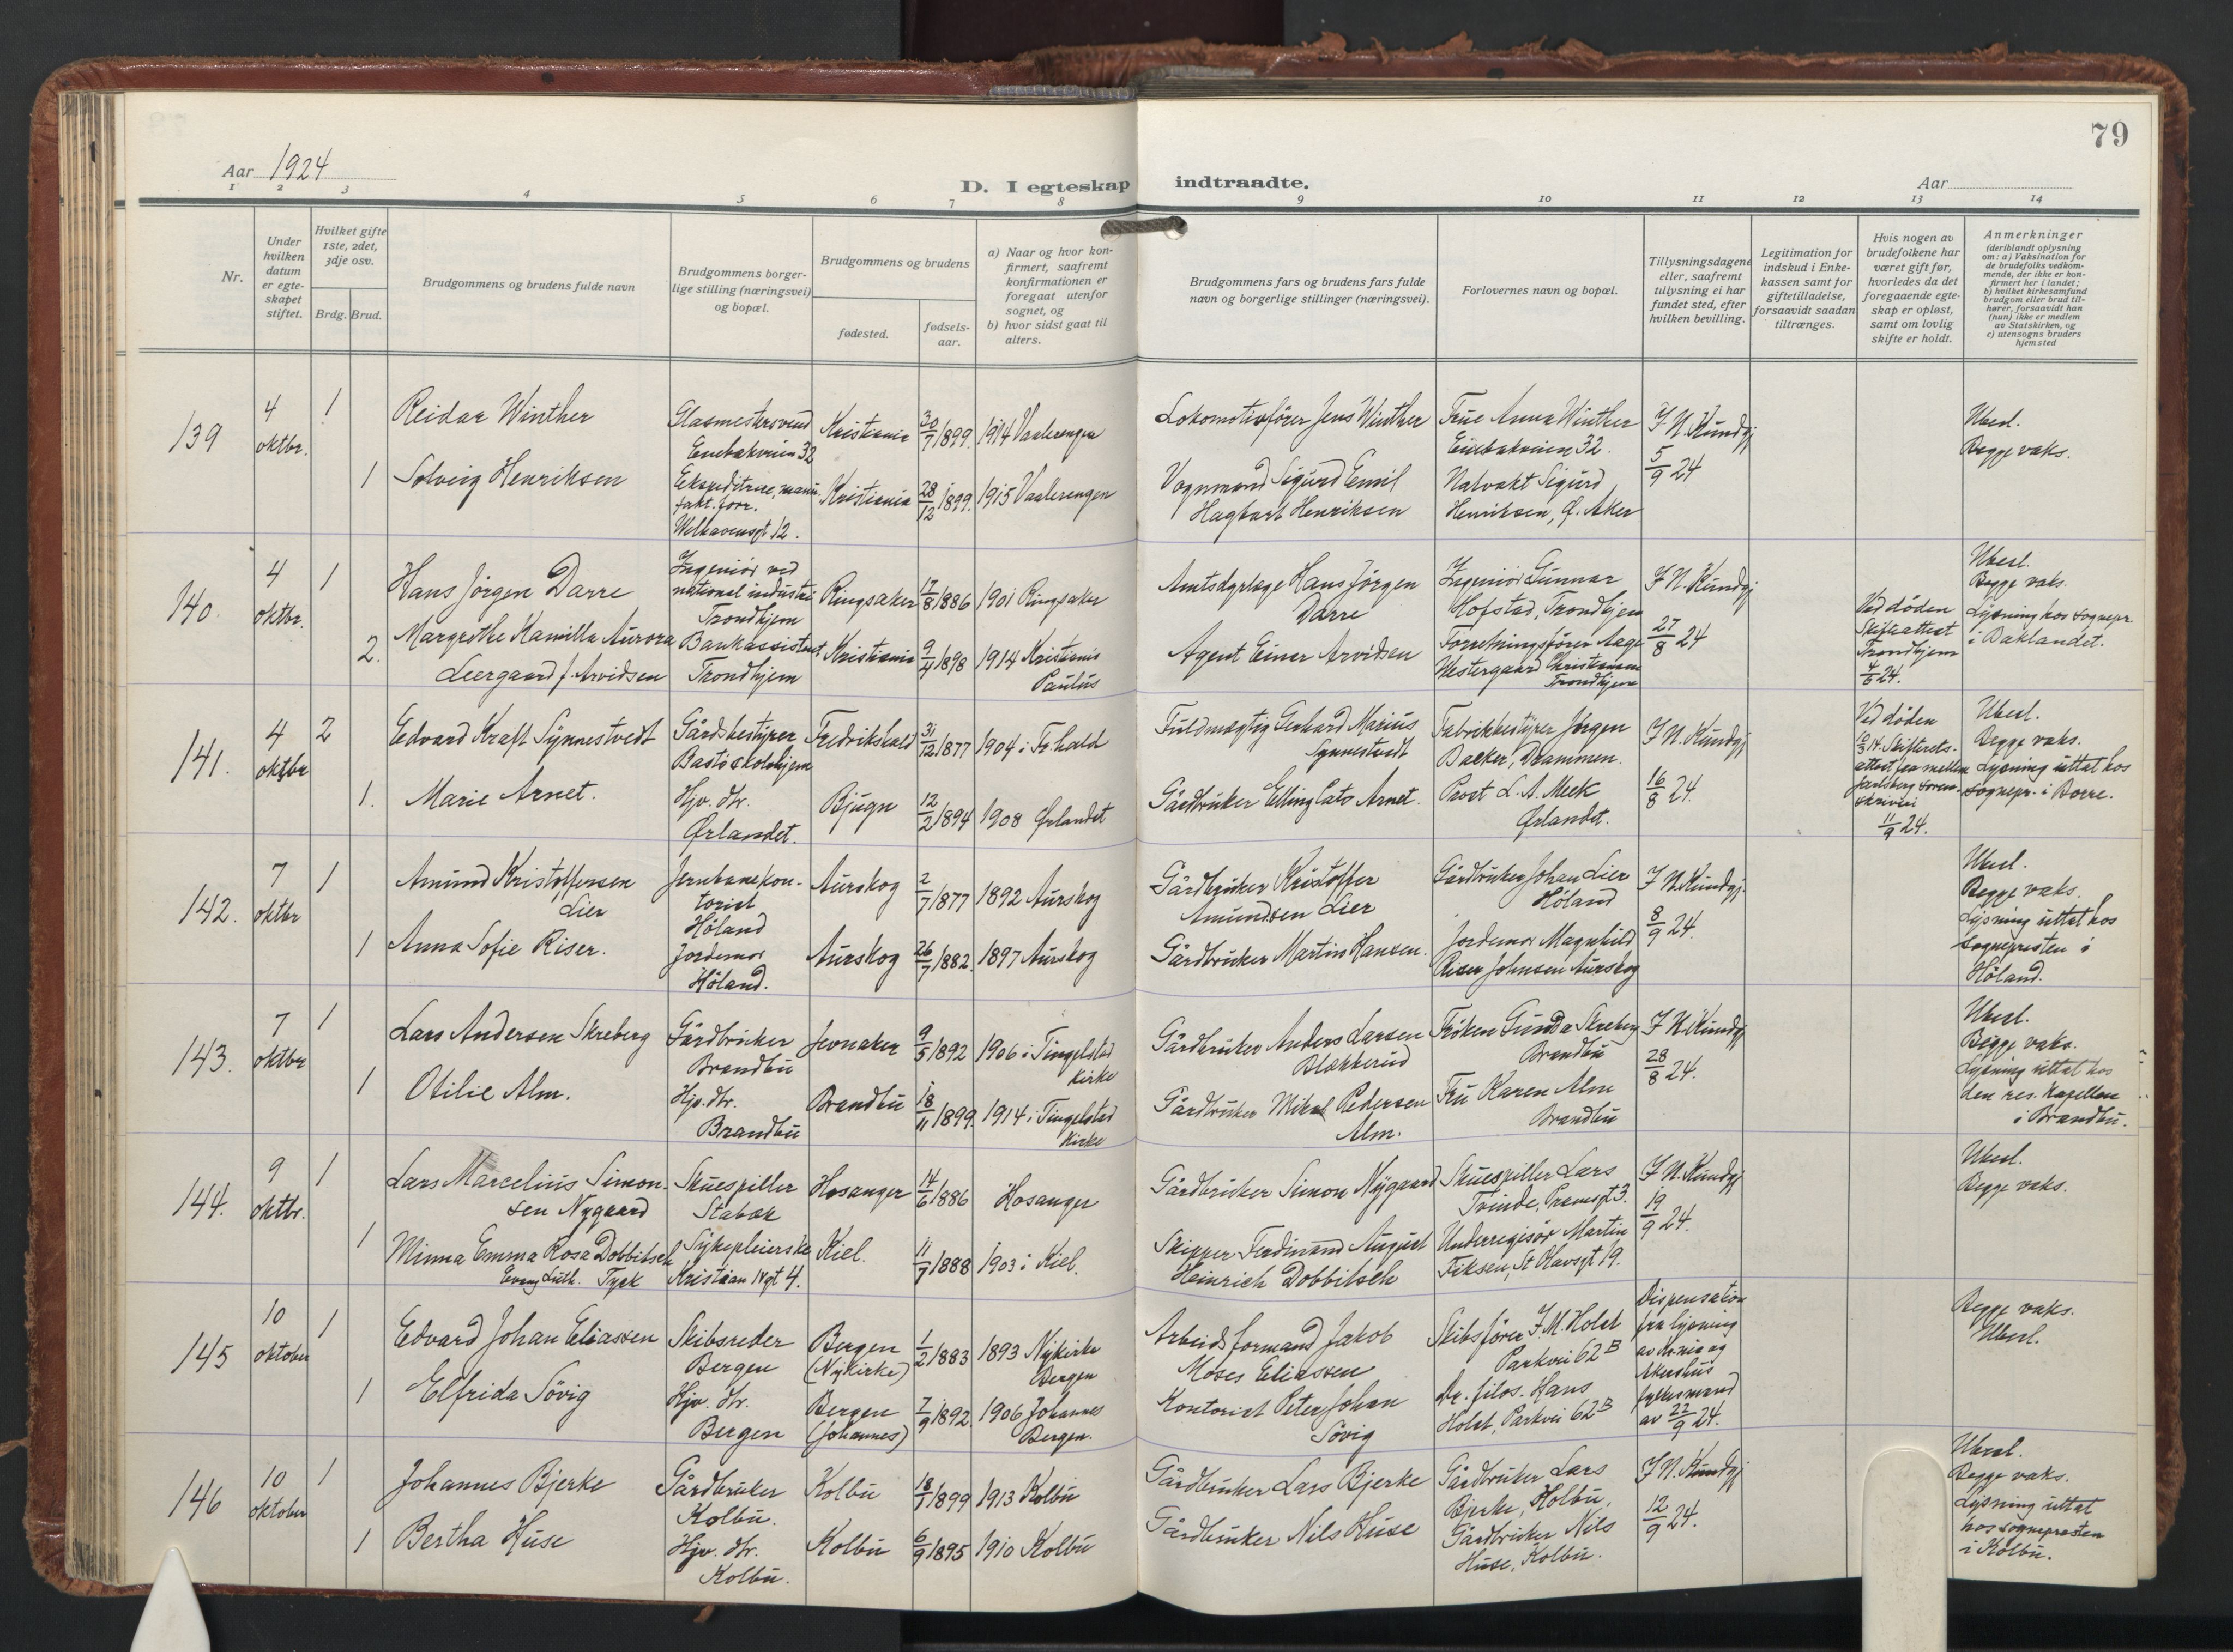 79
Aar 1924
D. I egteskap indtraadte.
Aar
1 2 3 4 5 6 7 8 9 10 11 12 13 14
Nr.
Under hvilken datum er egte-skapet stiftet.
Hvilket gifte 1ste, 2det, 3dje osv.
Brdg. Brud.
Brudgommens og brudens fulde navn
Brudgommens borger-lige stilling (næringsvei) og bopæl.
Brudgommens og brudens
fødested.
fødsels-aar.
a) Naar og hvor kon-firmert, saafremt konfirmationen er foregaat utenfor sognet, og
b) hvor sidst gaat til alters.
Brudgommens fars og brudens fars fulde navn og borgerlige stillinger (næringsvei).
Forlovernes navn og bopæl.
Tillysningsdagene eller, saafremt tillysning ei har fundet sted, efter hvilken bevilling.
Legitimation for indskud i Enke-kassen samt for giftetilladelse, forsaavidt saadan tiltrænges.
Hvis nogen av brudefolkene har været gift før, hvorledes da det foregaaende egte-skap er opløst, samt om lovlig skifte er holdt.
Anmerkninger
(deriblandt oplysning om: a) Vaksination for de brudefolks vedkom-mende, der ikke er kon-firmert her i landet; b) hvilket kirkesamfund brudgom eller brud til-hører, forsaavidt han (hun) ikke er medlem av Statskirken, og c) utensogns bruders hjemsted
139
4 oktbr.
1
Reidar Winther
Glasmestersvend
Enebakveien 32
Kristiania
30/7 1899.
1914 Vaalerengen
Lokomotivfører Jens Winther
Frue Anna Winther
Enebakveien 32.
F. N. Kundgj
5/9 24
Ubesl.
Begge vaks.
1
Solveig Henriksen
Ekspeditrise, manu-
fakt. forr.
Welhavensgt 12.
Kristiania
28/12 1899.
1915 Vaalerengen
Vognmand Sigurd Emil
Hagbart Henriksen
Natvakt Sigurd
Henriksen, Ø. Aker
140.
4 oktbr.
1
Hans Jørgen Darre
Ingeniør ved
national industri
Trondhjem
Ringsaker
17/8 1886
1901 Ringsaker
Amtsdyrlæge Hans Jørgen
Darre
Ingeniør Gunnar
Hofstad, Trondhjem
F. N. Kundgj
27/8 24
Ved døden
Skifteattest
Trondhjem
4/6 24.
Ubesl.
Begge vaks.
Lysning hos sognepr
i Baklandet.
2.
Margrethe Kamilla Aurora
Leergaard f. Arvidsen
Bankassistent
Trondhjem
Kristiania
9/4 1898
1914 Kristiania
Paulus
Agent Einar Arvidsen
Forretningsfører Aage
Westergaard Christensen
Trondhjem
141.
4 oktbr
2
Edvard Kraft Synnestvedt
Gårdsbestyrer
Bastø skolehjem
Fredrikshald
31/12 1877
1904 i Fr.hald
Fuldmægtig Gerhard Marius
Synnestvedt
Fabrikkbestyrer Jørgen
Backer, Drammen.
F. N. Kundgj
16/8 24.
Ved døden
Skifterets-
attest fra mellem
Jarlsberg soren-
skriveri
11/9 24.
Ubesl.
Begge vaks.
Lysning uttat hos
sognepr. i Borre.
1.
Marie Arnet.
Hjv. dtr.
Ørlandet.
Bjugn
12/2 1894
1908 Ørlandet
Gårdbruker Elling Cats Arnet.
Prost L. A. Meek
Ørlandet.
142.
7 oktbr
1
Amund Kristoffersen
Lier
Jernbanekon-
torist
Høland
Aurskog
2/7 1877
1892 Aurskog
Gårdbruker Kristoffer
Amundsen Lier
Gårdbruker Johan Lier
Høland
F. N. Kundgj.
8/9 24.
Ubesl.
Begge vaks.
Lysning uttat hos
sognepresten i
Høland.
1
Anna Sofie Riser.
Jordemor
Høland.
Aurskog
26/7 1882.
1897 Aurskog
Gårdbruker Martin Hansen.
Jordemor Magnhild
Riser Johnsen Aurskog
143.
7 oktbr
1
Lars Andersen Skreberg
Gårdbruker
Brandbu
Jevnaker
9/5 1892
1906 i Tingelstad
kirke
Gårdbruker Anders Larsen
Blekkerud
Frøken Gunda Skreberg
Brandbu
F. N. Kundgj
28/8 24.
Ubesl.
Begge vaks.
Lysning uttat hos
den res. kapellan
i Brandbu.
1
Otilie Alm.
Hjv. dtr.
Brandbu
Brandbu
18/11 1899
1914 i Tingelstad
kirke
Gårdbruker Mikal Pedersen
Alm.
Fru Karen Alm
Brandbu
144.
9 oktbr.
1
Lars Marcelius Simon-
sen Nygaard
Skuespiller
Stabæk
Hosanger
14/6 1886
Hosanger
Gårdbruker Simon Nygaard
Skuespiller Lars
Tvinde, Pramsgt 3.
F. N. Kundgj
19/9 24.
Ubesl.
Begge vaks.
1
Minna Emma Rosa Dobbitsch
Evang. Luth. Tysk
Sykepleierske
Kristian IVgt 4.
Kiel.
11/7 1888
1903 i Kiel.
Skipper Ferdinand August
Heinrich Dobbitsch
Underregisør Martin
Fiksen, St Olavsgt 19.
145
10 oktober
1
Edvard Johan Eliassen
Skibsreder
Bergen
Bergen
(Nykirke)
1/2 1883
1893 Nykirke
Bergen
Arbeidsformand Jakob
Moses Eliassen
Skibsfører F. M. Holst
Parkvei 62 B
Dispensation
fra lysning
av Kr.nia og
Akershus
fylkesmand
av 22/9 24.
Begge vaks.
Ubesl.
1
Elfrida Søvig
Hjv. dtr.
Bergen
Bergen
(Johannes)
7/9 1892.
1906 Johannes
Bergen.
Kontorist Peter Johan
Søvig
Dr. filos. Hans
Holst, Parkvei 62 B
146
10 oktober
1
Johannes Bjerke
Gårdbruker
Kolbu.
Kolbu
18/1 1899
1913 Kolbu
Gårdbruker Lars Bjerke
Gårdbruker Lars
Bjerke, Kolbu,
F. N. Kundgj
12/9 24.
Ubesl.
Begge vaks.
Lysning uttat
hos sognepresten
i Kolbu.
1
Bertha Huse
Hjv. dtr.
Kolbu.
Kolbu
6/9 1895
1910 Kolbu
Gårdbruker Nils Huse
Gårdbruker Nils
Huse, Kolbu.